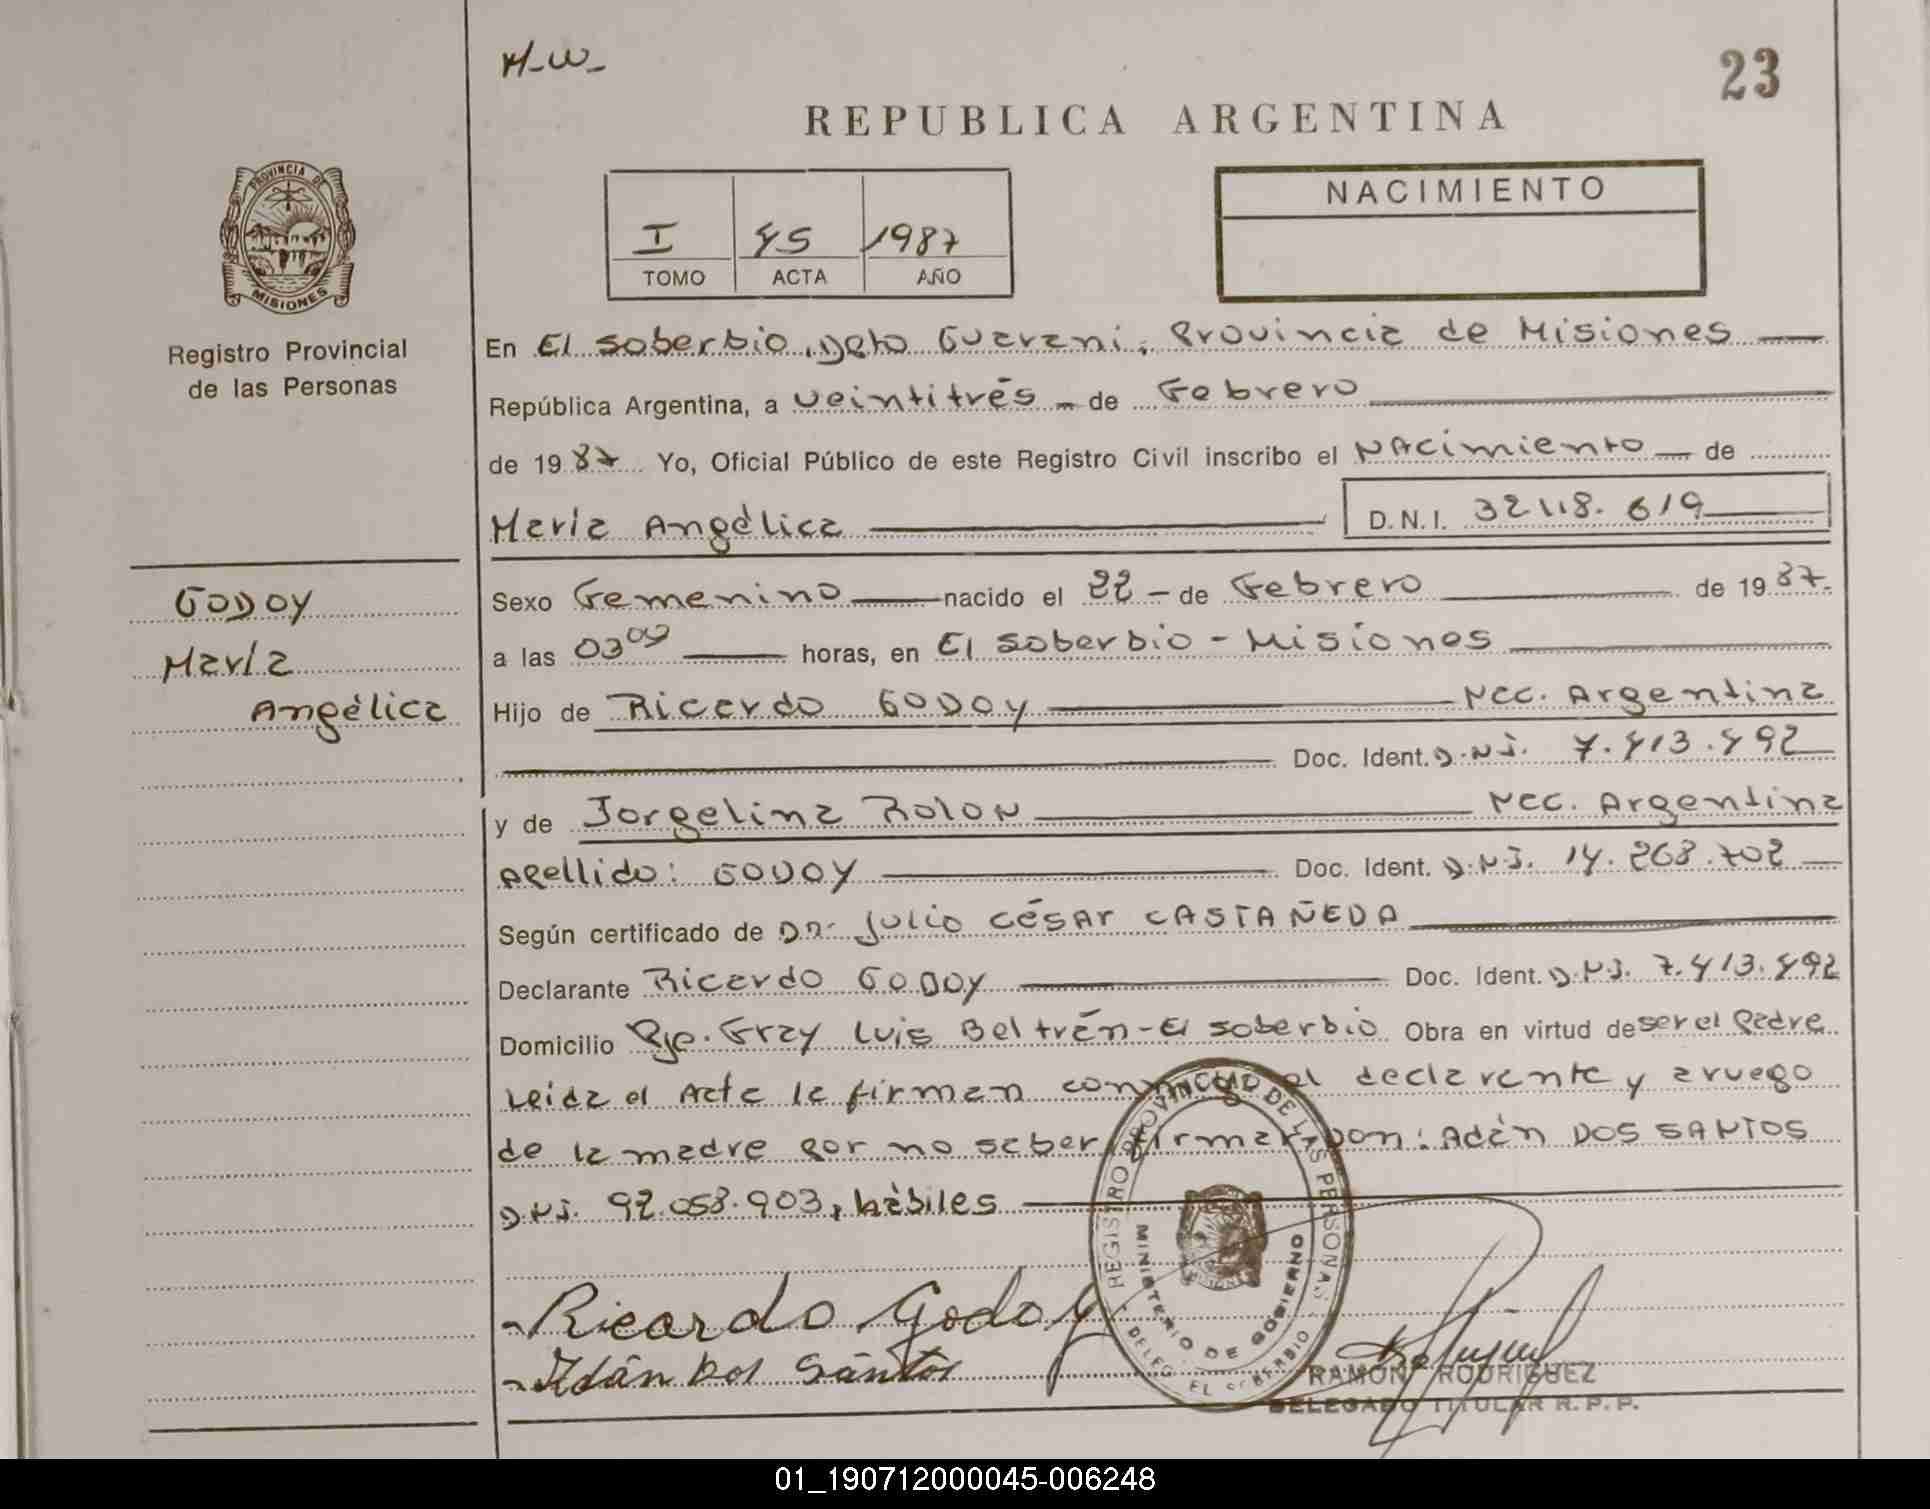 H-W-
23
REPUBLICA ARGENTINA
PROVINCIA DE
MISIONES
Registro Provincial
de las Personas
I 45 1987
TOMO ACTA AÑO
NACIMIENTO
En El Soberbio, Dpto Guaraní, Provincia de Misiones
República Argentina, a veintitrés - de Febrero
de 1987 Yo, Oficial Público de este Registro Civil inscribo el Nacimiento de
María Angélica D.N.I. 32.118.619
GODOY
María
Angélica
Sexo Femenino nacido el 22 - de Febrero de 1987.
a las 03 00 horas, en El Soberbio - Misiones
Hijo de Ricardo GODOY Nac. Argentina
Doc. Ident. D.N.I. 7.413.492
y de Jorgelina ROLON Nac. Argentina
Apellido: GODOY Doc. Ident. D.N.I. 14.268.702
Según certificado de Dr. Julio César CASTAÑEDA
Declarante Ricardo GODOY Doc. Ident. D.N.I. 7.413.492
Domicilio Pje. Fray Luis Beltrán - El Soberbio Obra en virtud de ser el Padre
Leida el Acta la firman conmigo el declarante y aruego
de la madre por no saber firmar Don: Adán DOS SANTOS
D.N.I. 92.058.903, hábiles
REGISTRO PROVINCIAL DE LAS PERSONAS
MINISTERIO DE GOBIERNO
DELEG. EL SOBERBIO
- Ricardo Godoy
- Adán Dos Sántos
RAMON RODRIGUEZ
DELEGADO TITULAR R.P.P.
01_190712000045-006248